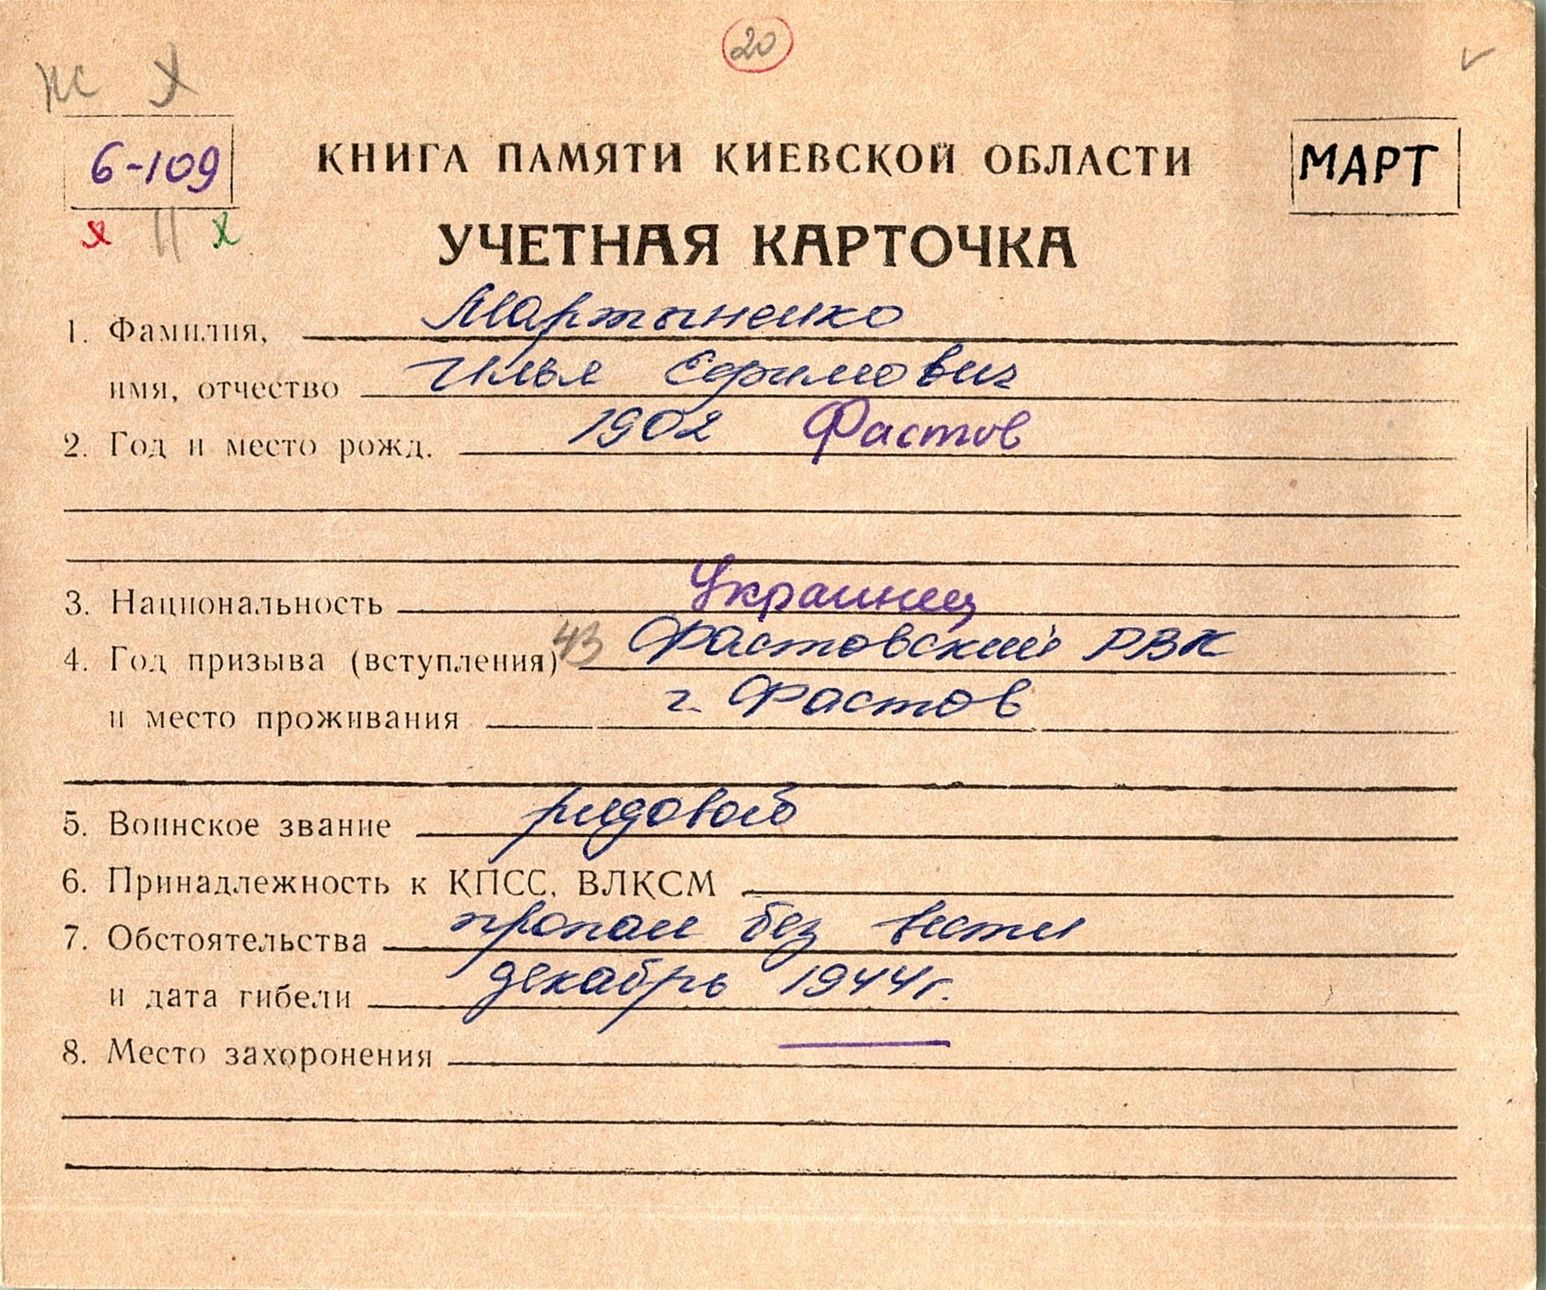 20
6-109
КНИГА ПАМЯТИ КИЕВСКОЙ ОБЛАСТИ
МАРТ
УЧЕТНАЯ КАРТОЧКА
1. Фамилия, Мартыненко
имя, отчество Илья Ефимович
2. Год и место рожд. 1902 Фастов
3. Национальность Украинец
4. Год призыва (вступления) 43 Фастовский РВК
и место проживания г. Фастов
5. Воинское звание рядовой
6. Принадлежность к КПСС, ВЛКСМ
7. Обстоятельства пропал без вести
и дата гибели декабрь 1944г.
8. Место захоронения